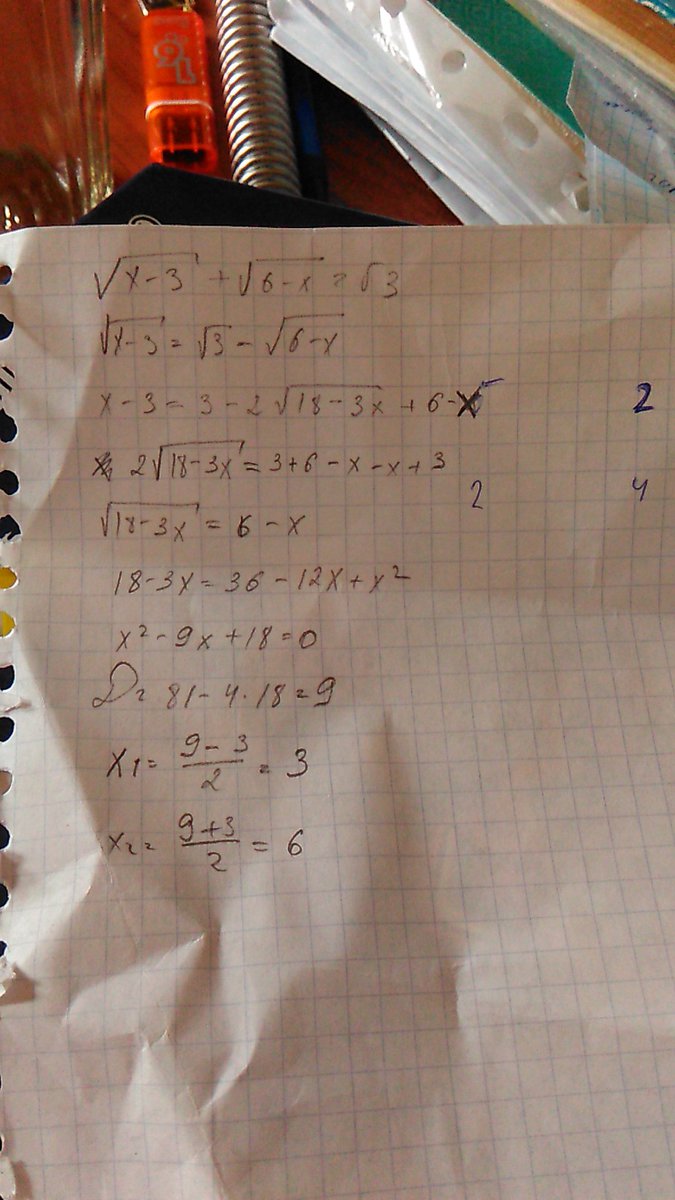 √(x-3) + √(6-x) = √3
√(x-3) = √3 - √(6-x)
x - 3 = 3 - 2√(18-3x) + 6 - x
2
2√(18-3x) = 3+6-x-x+3
2
4
√(18-3x) = 6 - x
18-3x = 36 - 12x + x²
x² - 9x + 18 = 0
D = 81 - 4·18 = 9
x₁ = (9-3)/2 = 3
x₂ = (9+3)/2 = 6